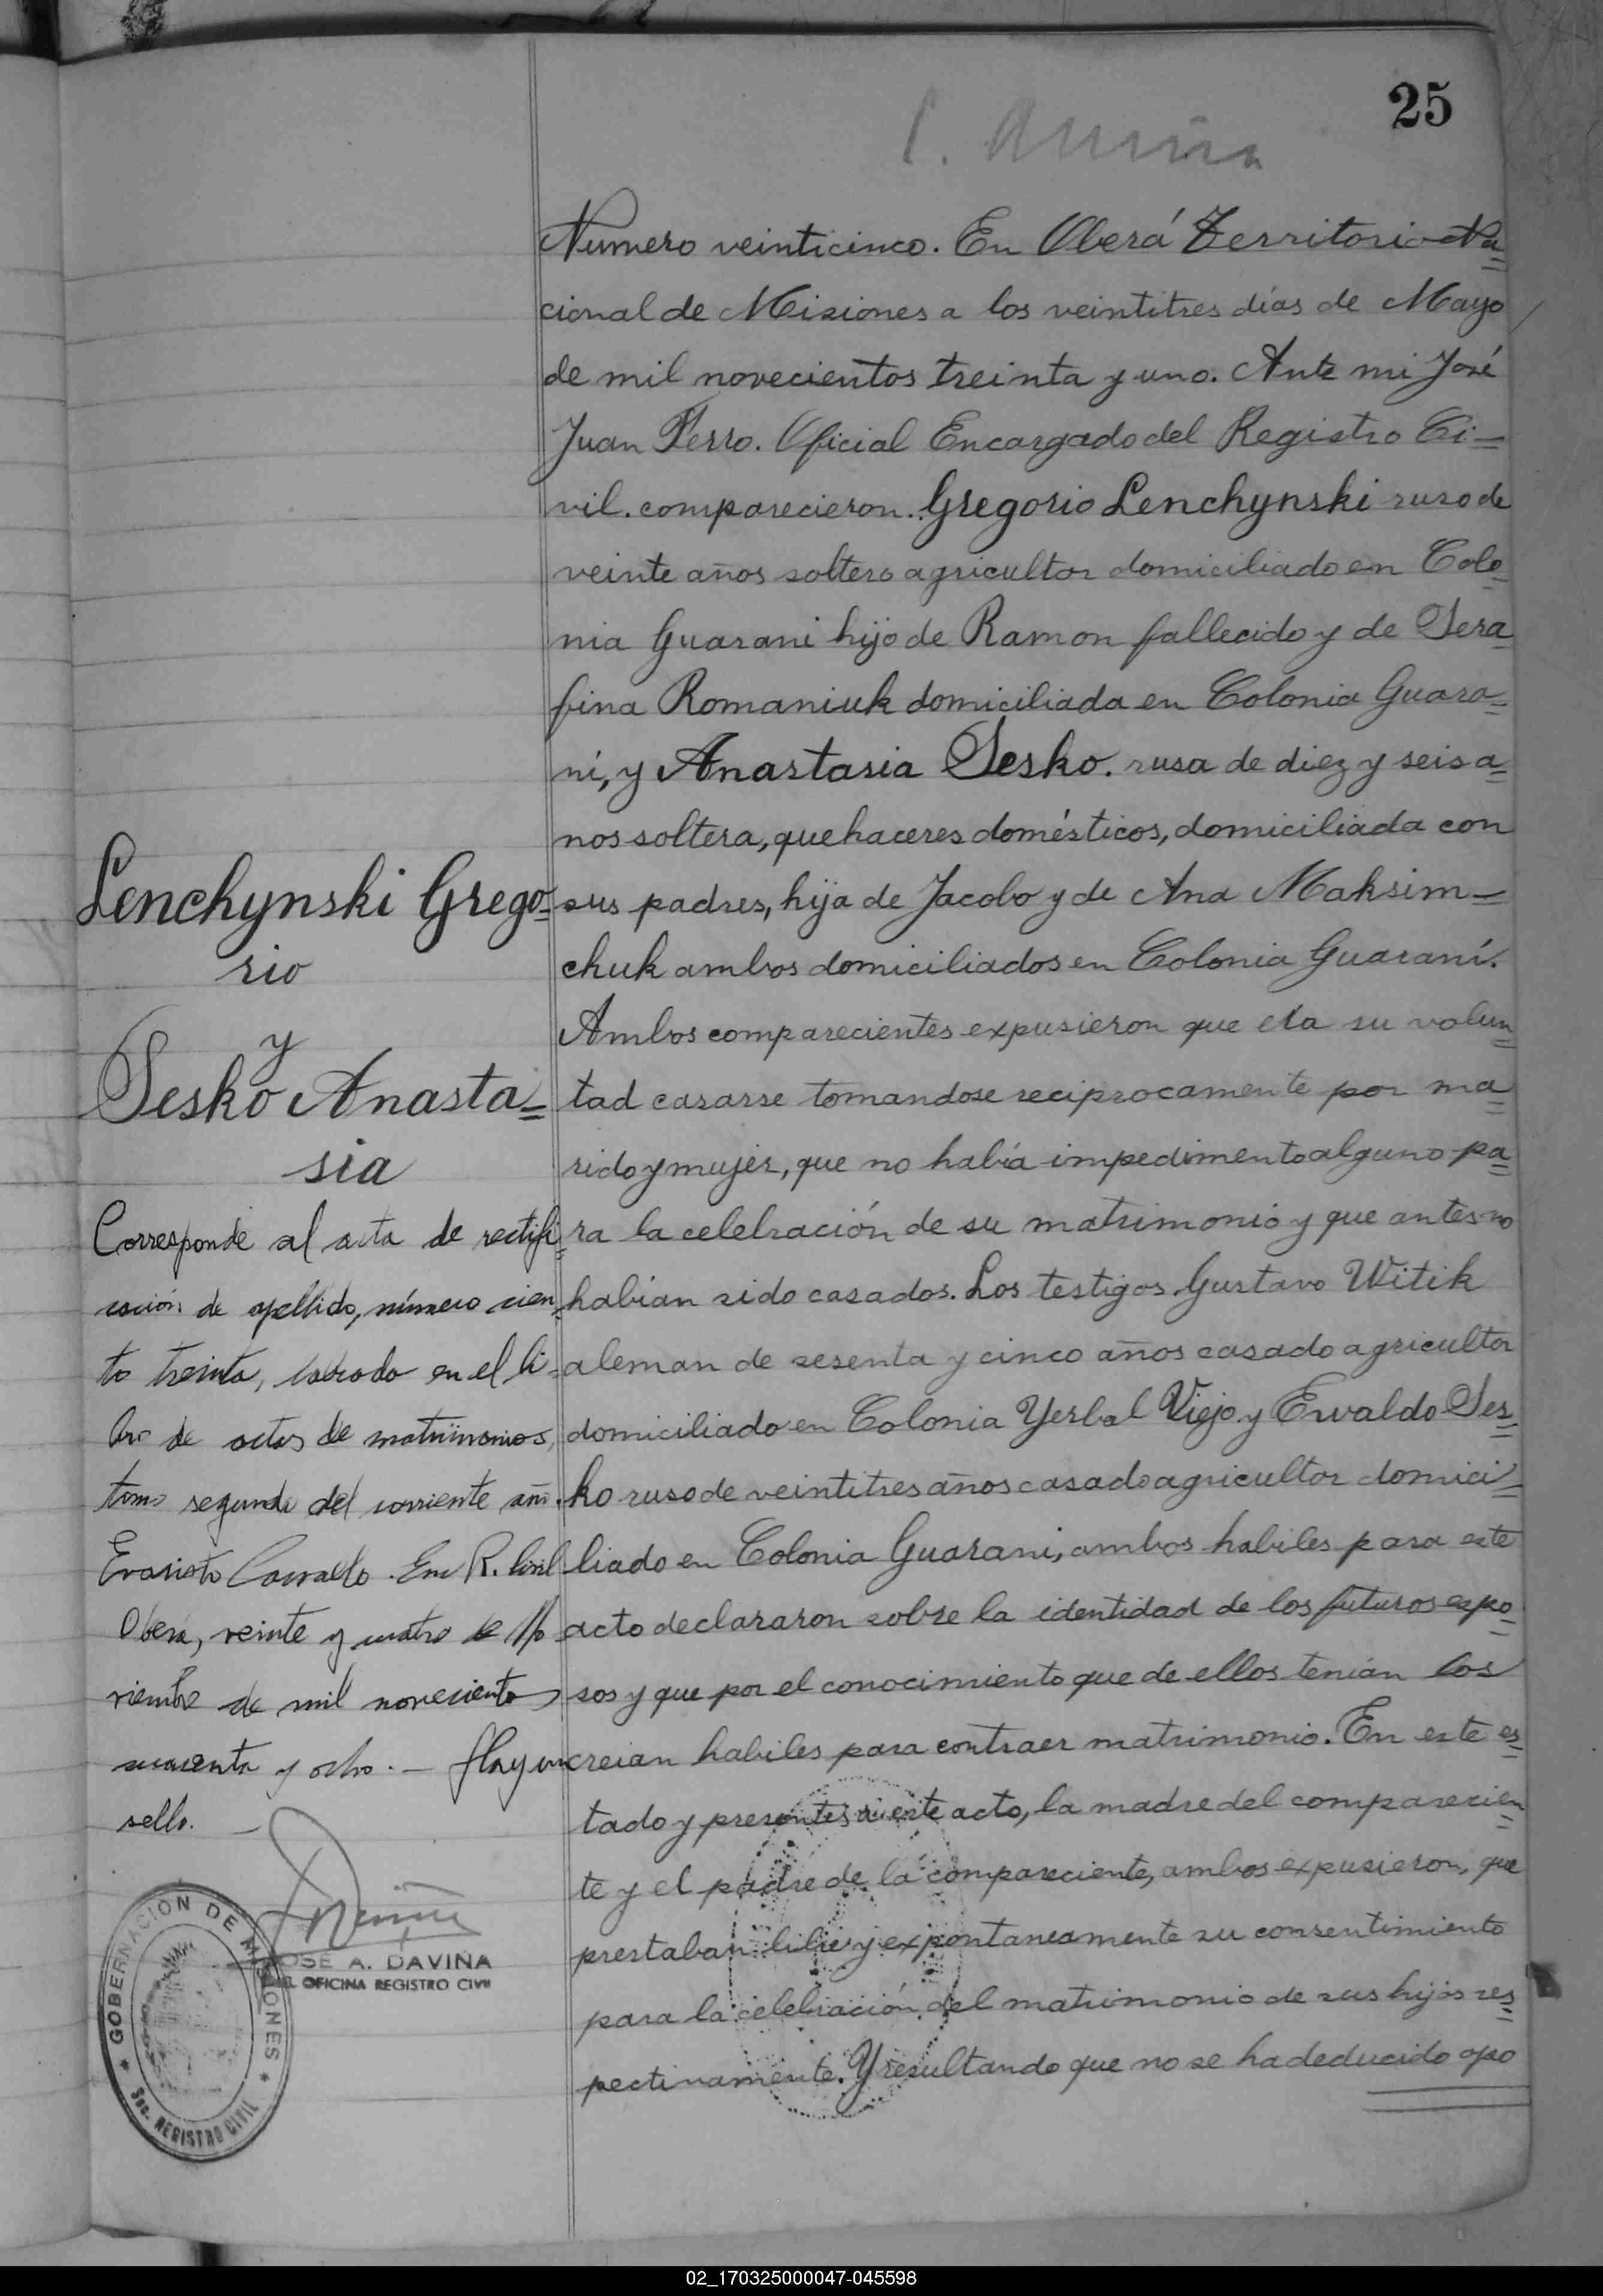 25
Numero veinticinco. En Oberá Territorio Na=
cional de Misiones a los veintitres días de Mayo
de mil novecientos treinta y uno. Ante mi José
Juan Perro. Oficial Encargado del Registro Ci-
vil. comparecieron. Gregorio Lenchynski ruso de
veinte años soltero agricultor domiciliado en Colo=
nia Guarani hijo de Ramon fallecido y de Sera=
fina Romaniuk domiciliada en Colonia Guara=
ní, y Anastasia Sesko. rusa de diez y seis a=
nos soltera, quehaceres domésticos, domiciliada con
sus padres, hija de Jacobo y de Ana Maksim-
chuk ambos domiciliados en Colonia Guaraní.
Ambos comparecientes expusieron que era su volun=
tad casarse tomandose reciprocamente por ma=
rido y mujer, que no había impedimento alguno pa=
ra la celebración de su matrimonio y que antes no
habían sido casados. Los testigos Gustavo Witik
aleman de sesenta y cinco años casado agricultor
domiciliado en Colonia Yerbal Viejo y Ewaldo Ses=
ko ruso de veintitres años casado agricultor domici=
liado en Colonia Guarani, ambos habiles para este
acto declararon sobre la identidad de los futuros espo=
sos y que por el conocimiento que de ellos tenían los
creian habiles para contraer matrimonio. En este es=
tado y presentes a este acto, la madre del comparecien=
te y el padre de la compareciente, ambos expusieron, que
prestaban libre y expontaneamente su consentimiento
para la celebración del matrimonio de sus hijos res=
pectivamente. Y resultando que no se ha deducido opo
Lenchynski Grego=
rio
y
Sesko Anasta=
sia
Corresponde al acta de rectifi-
cación de apellido, número cien-
to treinta, labrada en el li-
bro de actas de matrimonios,
tomo segundo del corriente año.
Evaristo Enc R. Civil
Oberá, veinte y cuatro de No
viembre de mil novecientos
cuarenta y ocho. — Hay un
sello. —
JOSE A. DAVIÑA
OFICINA REGISTRO CIVIL
GOBERNACION DE MISIONES
SEC. REGISTRO CIVIL
02_170325000047-045598